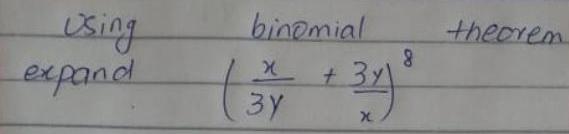 Using binomial theorem
expand (x/3y + 3y/x)^8